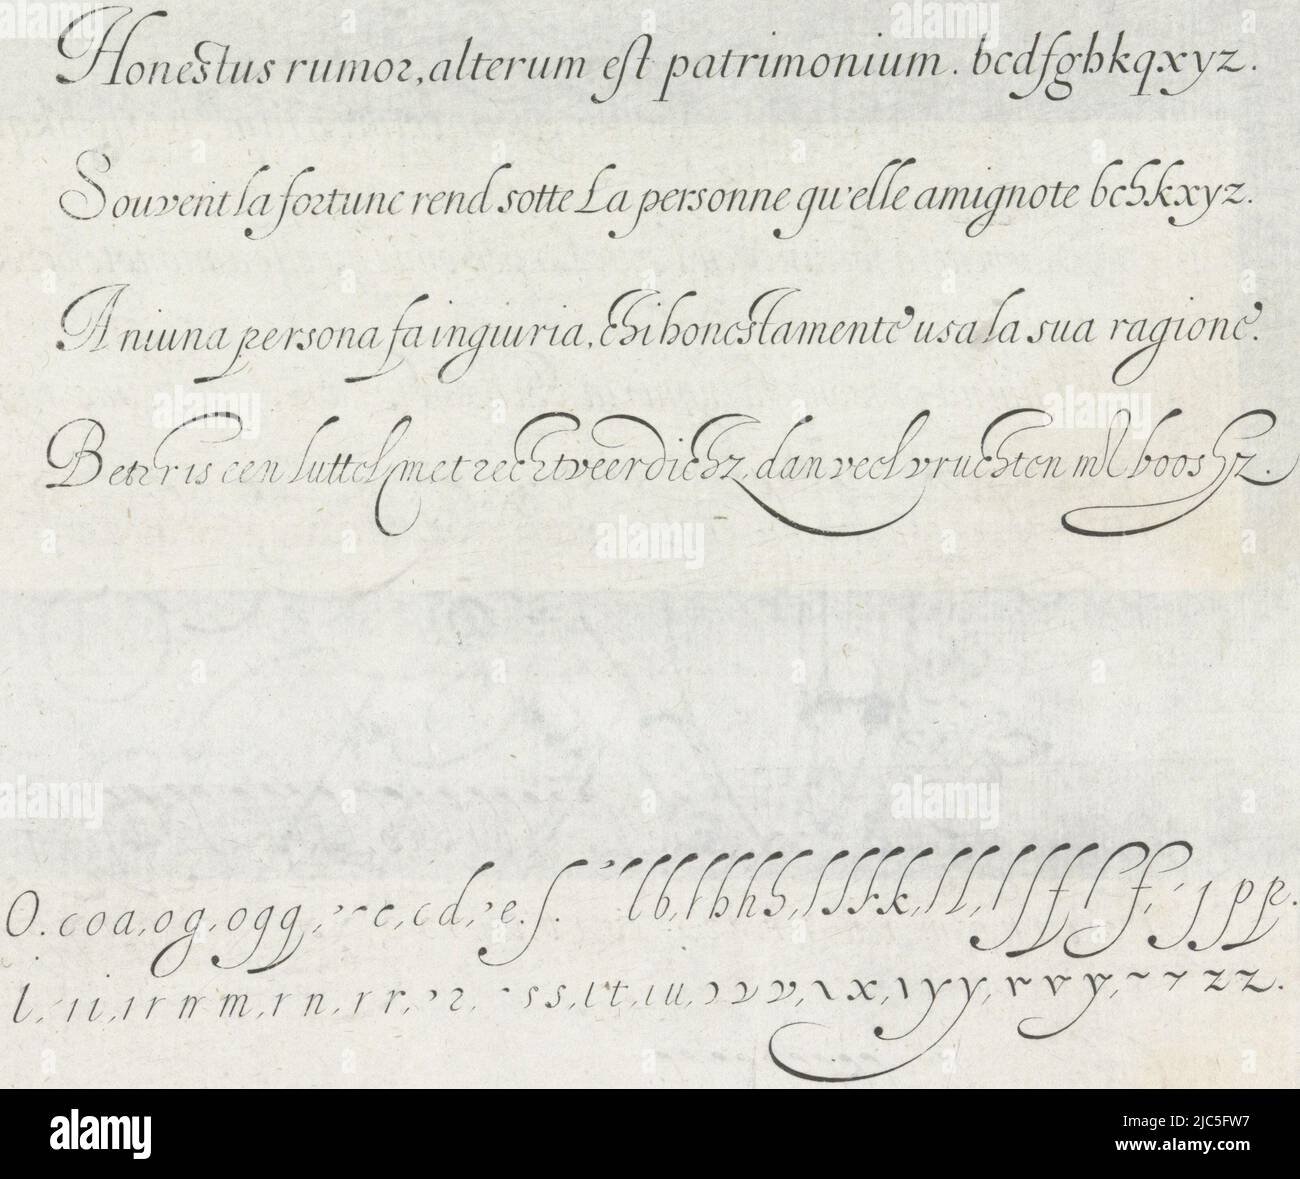 Honestus rumor, alterum est patrimonium. bcdfghkqxyz.
Souvent la fortune rend sotte La personne qu'elle amignote bchkxyz.
A niuna persona fa ingiuria, chi honestamente usa la sua ragione.
Beter is een luttel met rechtveerdicht, dan veel vruchten mel boosht.
O. c o a, o g, o g q, c, c d, e. ſ. l b, l h h h, l l k k, l l, l ſ f ſ f, j p p.
l, i i, ı r n m, r n, r r, 2, s s, ı t, ı u, v v, x, y y, v y, z z.
alamy
Image ID: 2JC5FW7
www.alamy.com